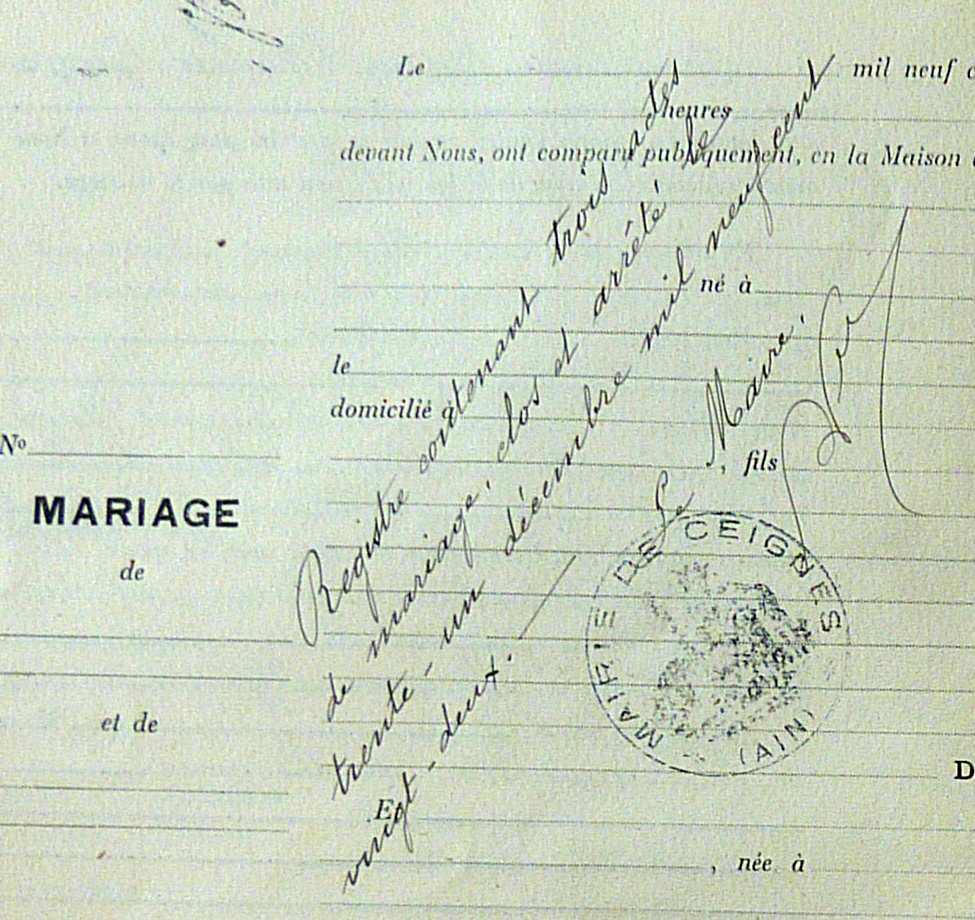 Le mil neuf
heures
devant Nous, ont comparu publiquement, en la Maison
né à
le
domicilié à
, fils
No
MARIAGE
de
et de
Et
, née à
D
Registre contenant trois actes
de mariage, clos et arrêté le
trente-un décembre mil neuf cent
vingt-deux.
Le Maire.
MAIRIE DE CEIGNES
(AIN)